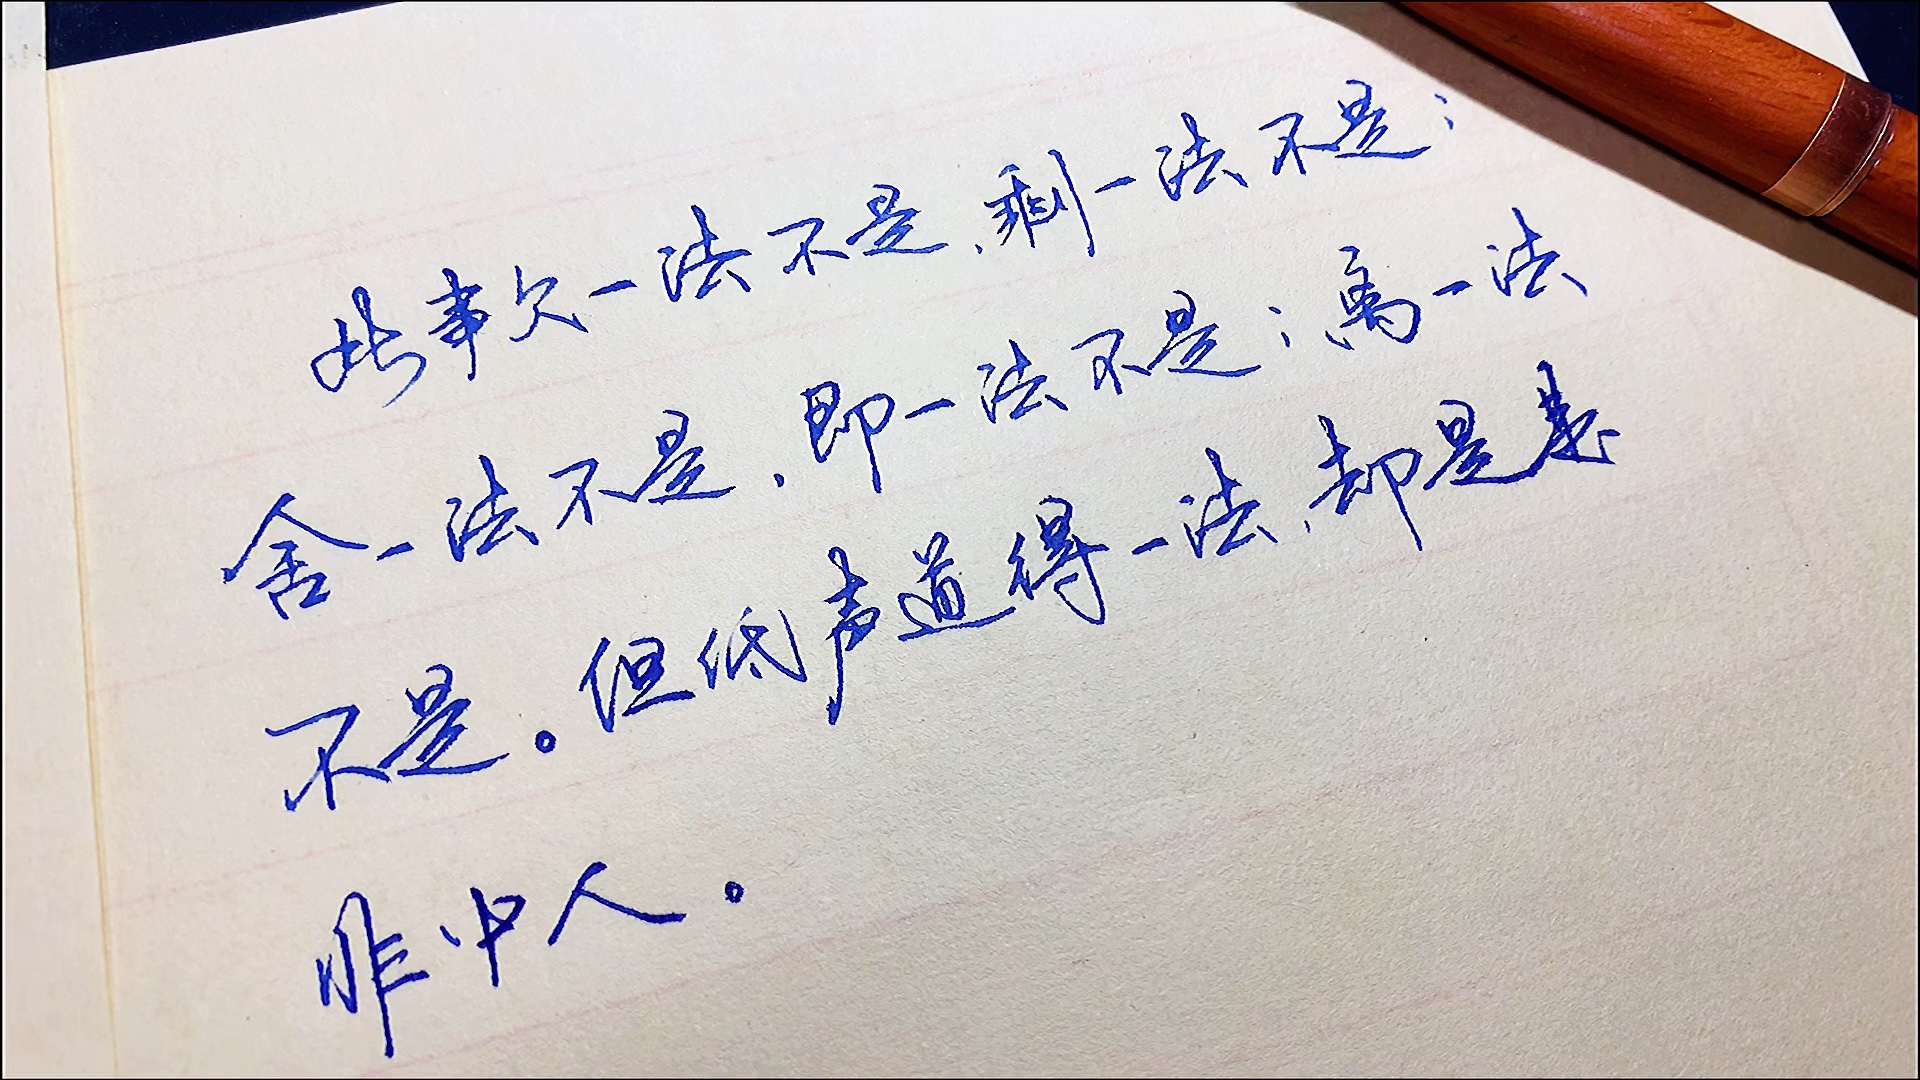 此事欠一法不是、剩一法不是；
舍一法不是、即一法不是；离一法
不是。但低声道得一法、却是
非中人。